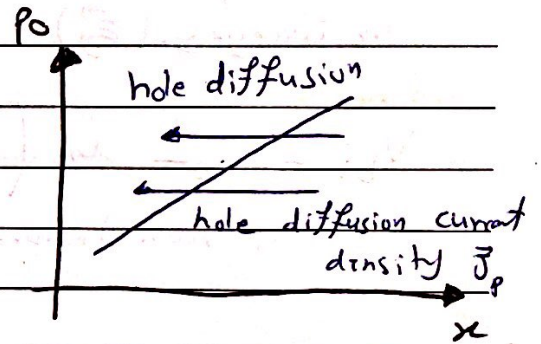 p0
hole diffusion
hole diffusion current
density J⃗p
x